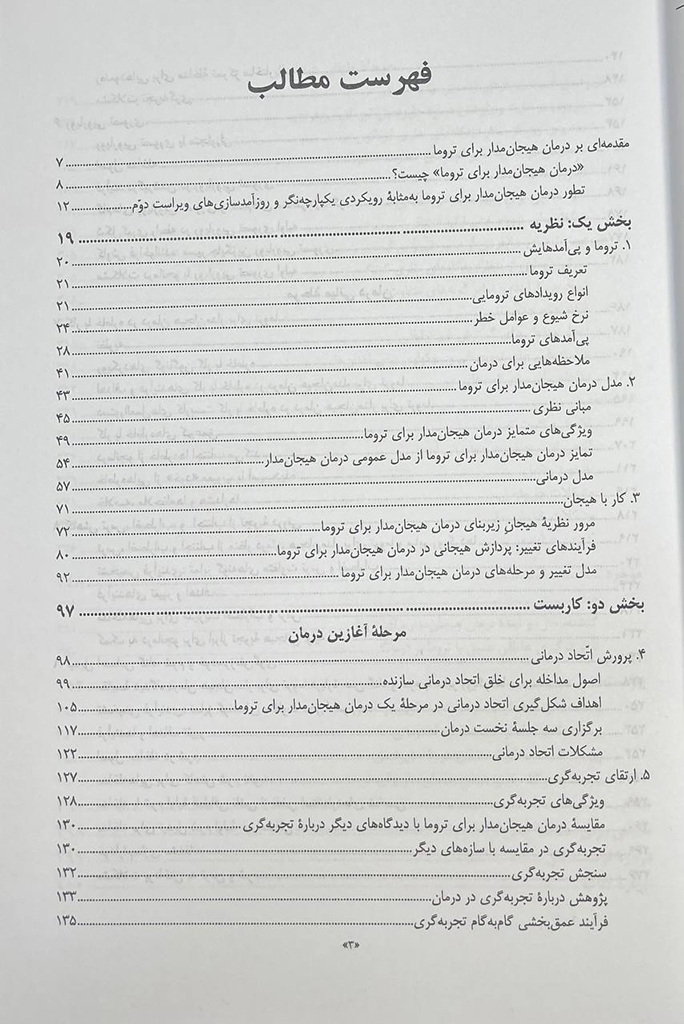 فهرست مطالب
مقدمه‌ای بر درمان هیجان‌مدار برای تروما ... ۷
«درمان هیجان‌مدار برای تروما» چیست؟ ... ۸
تطور درمان هیجان‌مدار برای تروما به‌مثابهٔ رویکردی یکپارچه‌نگر و روزآمدسازی‌های ویراست دوّم ... ۱۲
بخش یک: نظریه ... ۱۹
۱. تروما و پی‌آمدهایش ... ۲۰
تعریف تروما ... ۲۱
انواع رویدادهای ترومایی ... ۲۱
نرخ شیوع و عوامل خطر ... ۲۴
پی‌آمدهای تروما ... ۲۸
ملاحظه‌هایی برای درمان ... ۴۱
۲. مدل درمان هیجان‌مدار برای تروما ... ۴۳
مبانی نظری ... ۴۵
ویژگی‌های متمایز درمان هیجان‌مدار برای تروما ... ۴۹
تمایز درمان هیجان‌مدار برای تروما از مدل عمومی درمان هیجان‌مدار ... ۵۴
مدل درمانی ... ۵۷
۳. کار با هیجان ... ۷۱
مرور نظریهٔ هیجانِ زیربنای درمان هیجان‌مدار برای تروما ... ۷۲
فرآیندهای تغییر: پردازش هیجانی در درمان هیجان‌مدار برای تروما ... ۸۰
مدل تغییر و مرحله‌های درمان هیجان‌مدار برای تروما ... ۹۲
بخش دو: کاربست ... ۹۷
مرحلهٔ آغازین درمان
۴. پرورش اتّحاد درمانی ... ۹۸
اصول مداخله برای خلق اتحاد درمانی سازنده ... ۹۹
اهداف شکل‌گیری اتحاد درمانی در مرحلهٔ یک درمان هیجان‌مدار برای تروما ... ۱۰۵
برگزاری سه جلسهٔ نخست درمان ... ۱۱۷
مشکلات اتحاد درمانی ... ۱۲۲
۵. ارتقای تجربه‌گری ... ۱۲۷
ویژگی‌های تجربه‌گری ... ۱۲۸
مقایسهٔ درمان هیجان‌مدار برای تروما با دیدگاه‌های دیگر دربارهٔ تجربه‌گری ... ۱۳۰
تجربه‌گری در مقایسه با سازه‌های دیگر ... ۱۳۰
سنجش تجربه‌گری ... ۱۳۲
پژوهش دربارهٔ تجربه‌گری در درمان ... ۱۳۳
فرآیند عمق‌بخشی گام‌به‌گام تجربه‌گری ... ۱۳۵
«۳»